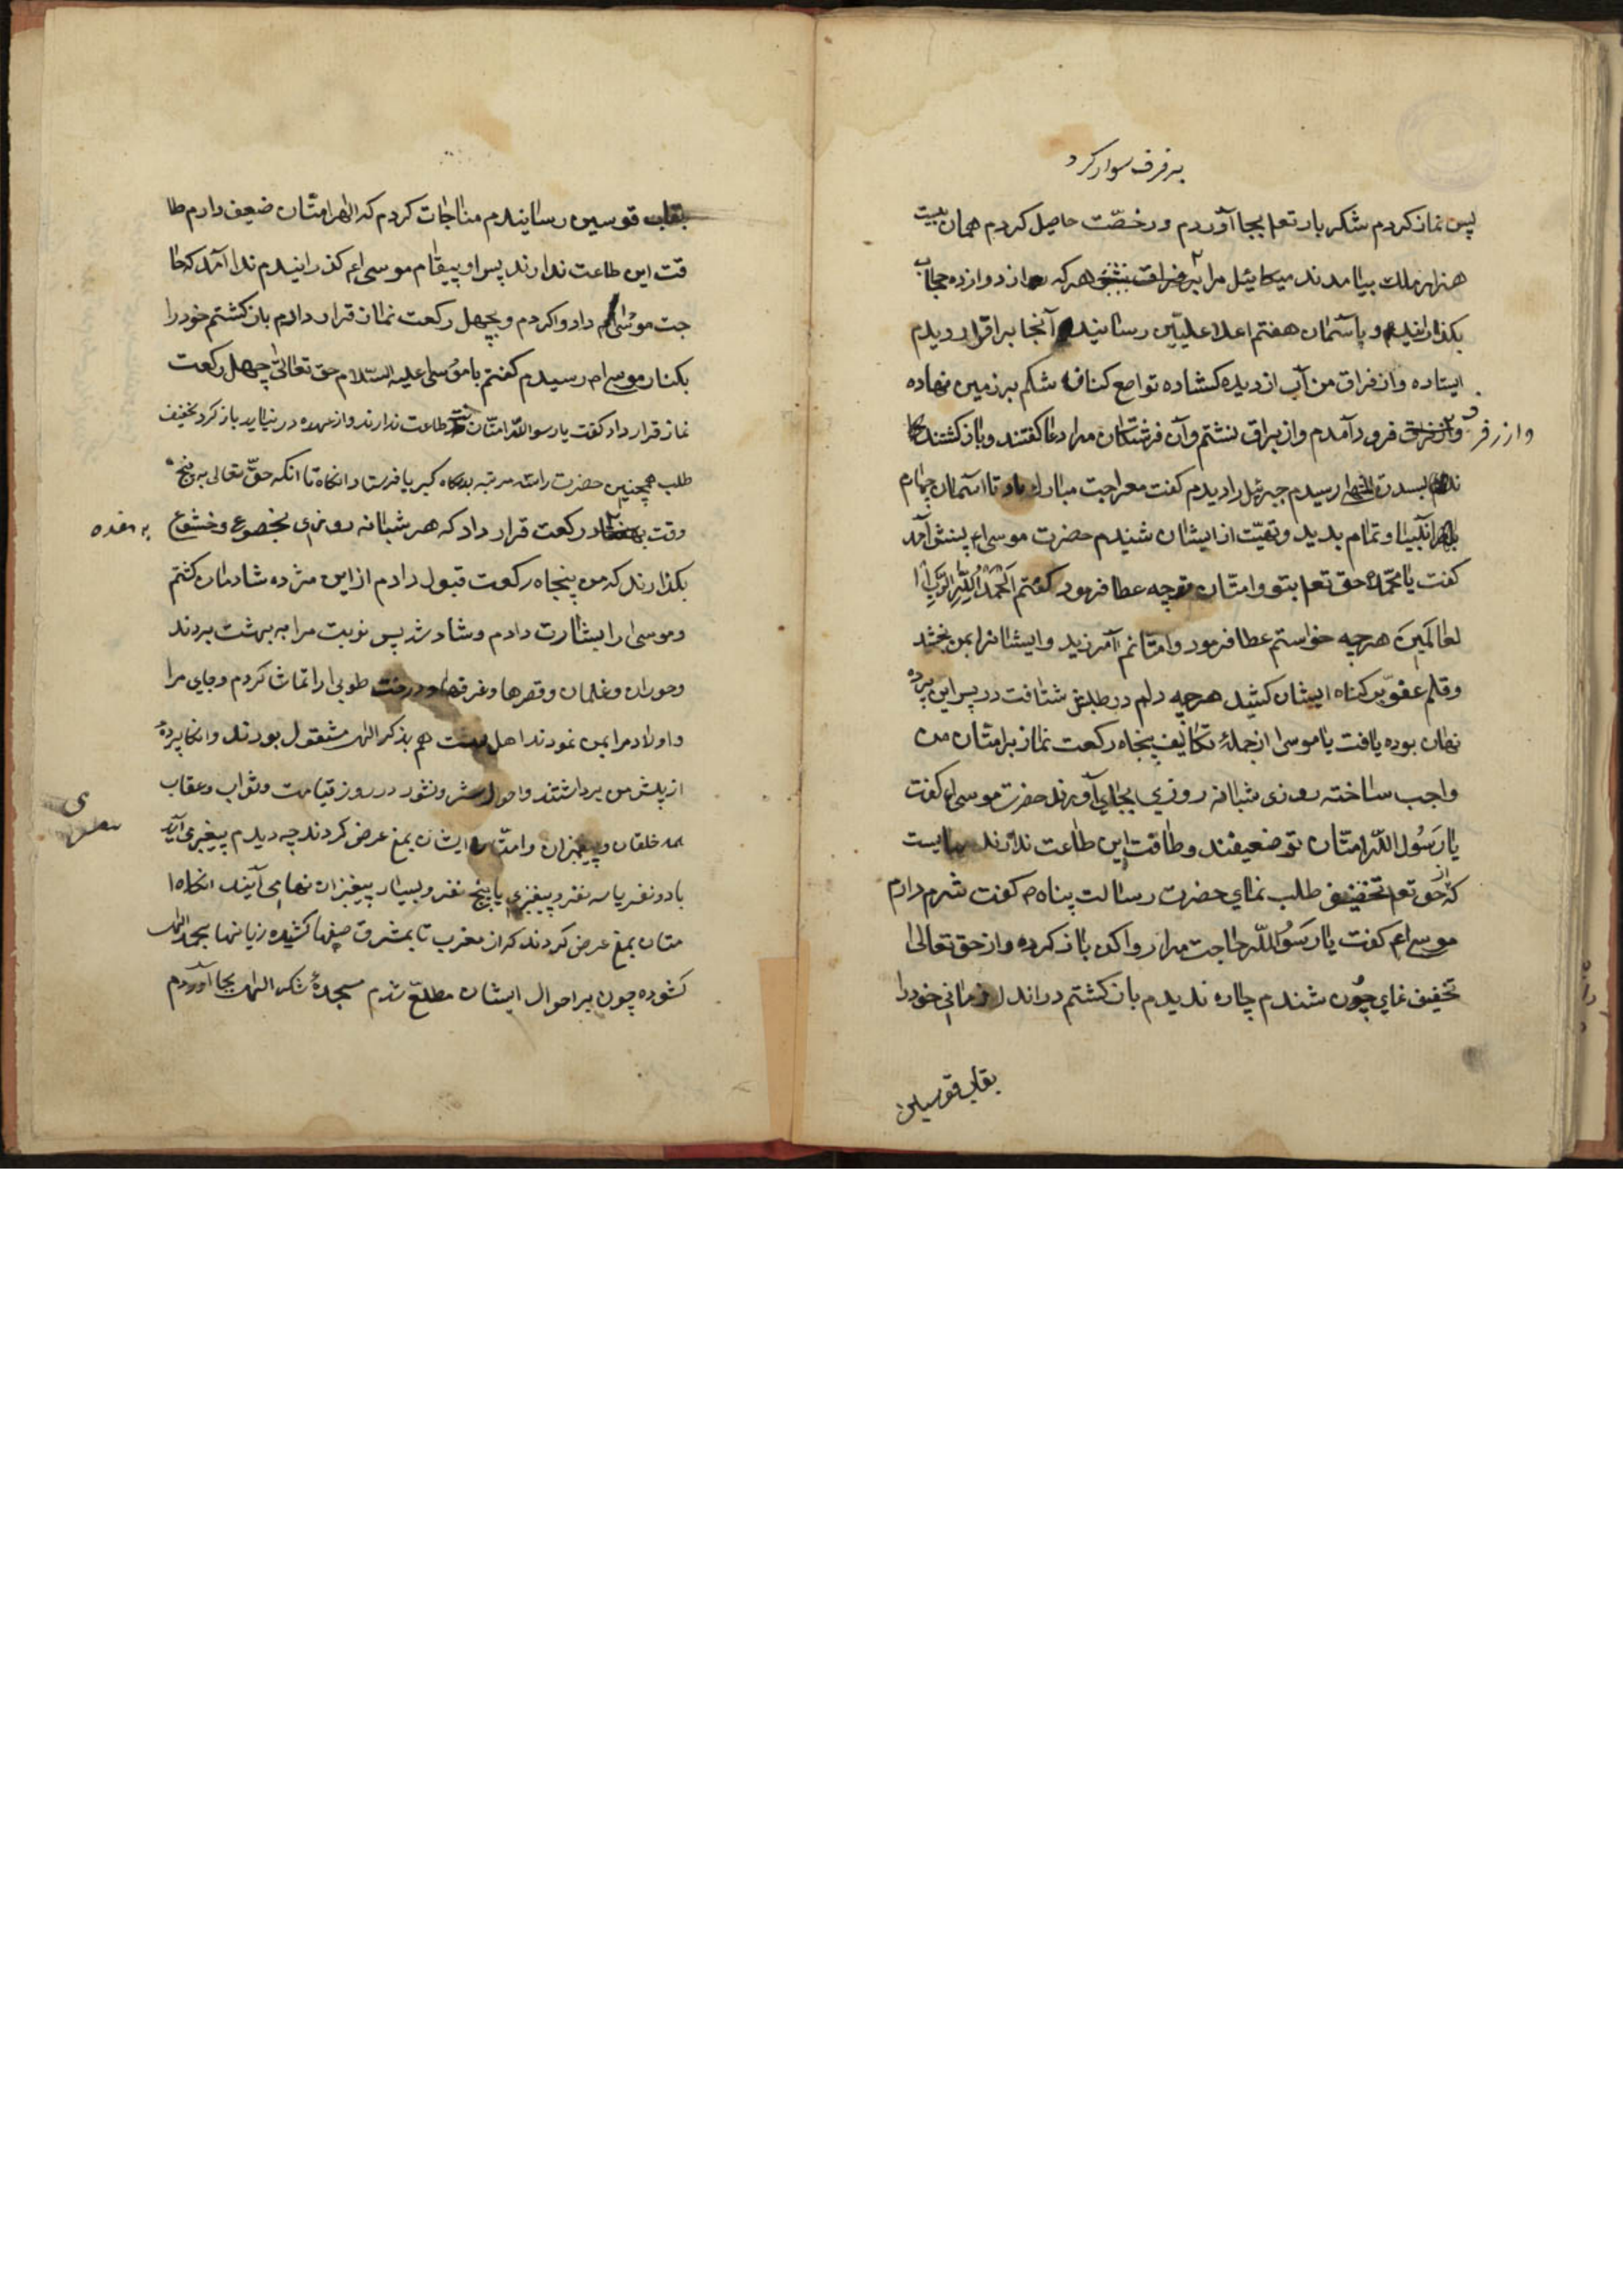 بر فرف سوار کرد
پس نماز کردم شکر بار تعم بجا آوردم و رخصّت حاصل کردم همان بیست
هزار ملك بیامدند میکائیل مرا بر هرکه از دوازده حجاب
بکذرانید و باسمان هفتم اعلا علیّین رسانید آنجا براقرا دیدم
ایستاده و از فراق من آب از دیده کشاده تواضع کنان شکم بر زمین نهاده
و از رفرف فرود آمدم و از براق نشتم و آن فرشتکان مرا دعا کفتند و باز کشتند
بسدرة المنتهی رسیدم جبرئل را دیدم کفت معراجت مبارك باد تا اسمان چهارم
انبیا و تمام بدید و تهیّت از ایشان شنیدم حضرت موسی ام پیش آمد
کفت یا محمّد حق تعم بتو و امتان توچه عطا فرمود کفتم اَلْحَمْدُ لِلّٰهِ رَبِّ ا
لعالَمینَ هرچه خواستم عطا فرمود و امتانم آمرزید و ایشانرا بمن بخشید
و قلم عفو بر کناه ایشان کشید هرچه دلم در طلبش شتافت در پس این پرده
نهان بوده یافت یا موسی از جملهٔ تکالیف پنجاه رکعت نماز بر امتان من
واجب ساخته روزی شبانه روزی بجای آورند حضرت موسی ام کفت
یا رَسُول اللّه امتان تو ضعیفند و طاقت این طاعت ندارند میبایست
که از حق تعم تخفیف طلب نمای حضرت رسالت پناه م کفت شرم دارم
موسی ام کفت یا رَسُول اللّه حاجت مرا روا کن باز کرده و از حق تعالی
تخفیف نمای چون شندم چاره ندیدم باز کشتم در اندك زمانی خود را
بقاب قوسین
بقاب قوسین رسانیدم مناجات کردم که الهی امتان ضعیف دارم طا
قت این طاعت ندارند پس او پیغام موسی ام کذرانیدم ندا آمد که حا
جت موسی ام داد و اکردم و بچهل رکعت نماز قرار دادم باز کشتم خود را
بکنار موسی ام رسیدم کفتم یا موسی علیه السّلام حق تعالیٰ چهل رکعت
نماز قرار داد کفت یا رسو اللّه امتان طاعت ندارند و از عهده در نیاید باز کرد تخفیف
طلب همچنین حضرت را سه مرتبه بدرکاه کبریا فرستاد انکاه تا انکه حقّ تعالی به پنج
وقت به هفده رکعت قرار داد که هر شبانه روزی بخضوع و خشوع
بکذارند که من پنجاه رکعت قبول دادم از این مژده شادمان کشتم
و موسی را بشارت دادم و شاد شد پس نوبت مرا به بهشت بردند
و حوران و غلمان و قصرها و غرفها و درخت طوبی را تماشا کردم و جای مرا
و اولاد مرا بمن نمودند اهل بهشت هم بذکر الهی مشغول بودند و انکا پردهٔ
از پیش من برداشتند و احوال حشر و نشور در روز قیامت و ثواب و عقاب
همه خلقان و پیغمبران و امتان ایشان بمن عرض کردند چه دیدم پیغمبری آید
با دو نفر یا سه نفر و پیغمبری با پنج نفر و بسیار پیغمبران تنها می آیند انکاه ا
متان بمن عرض کردند که از مغرب تا بمشرق صفها کشیده زبانها بحمد الهی
کشوده چون بر احوال ایشان مطلعّ شدم سجدهٔ شکر الهی بجا آوردم